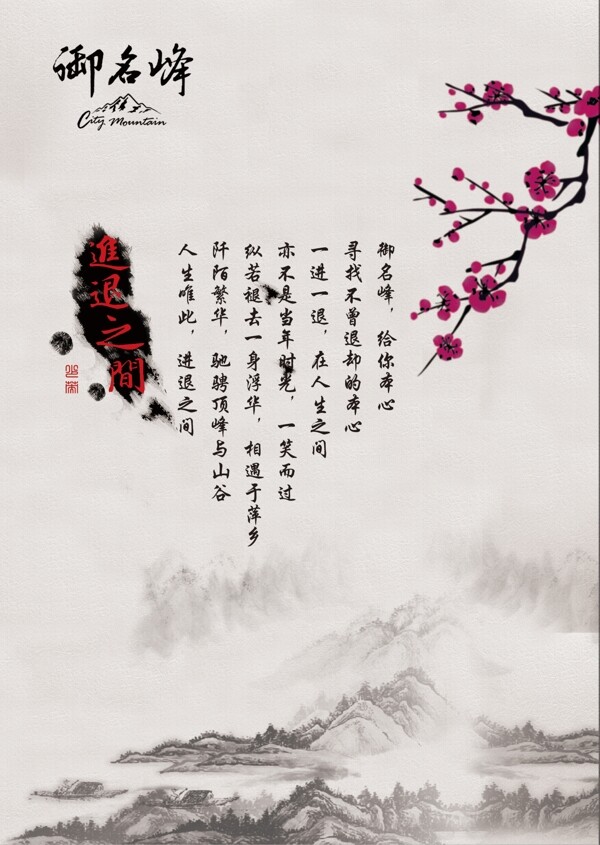 御名峰
City Mountain
進退之間
御名峰，给你本心
寻找不曾退却的本心
一进一退，在人生之间
亦不是当年时光，一笑而过
纵若褪去一身浮华，相遇于萍乡
阡陌繁华，驰骋顶峰与山谷
人生唯此，进退之间